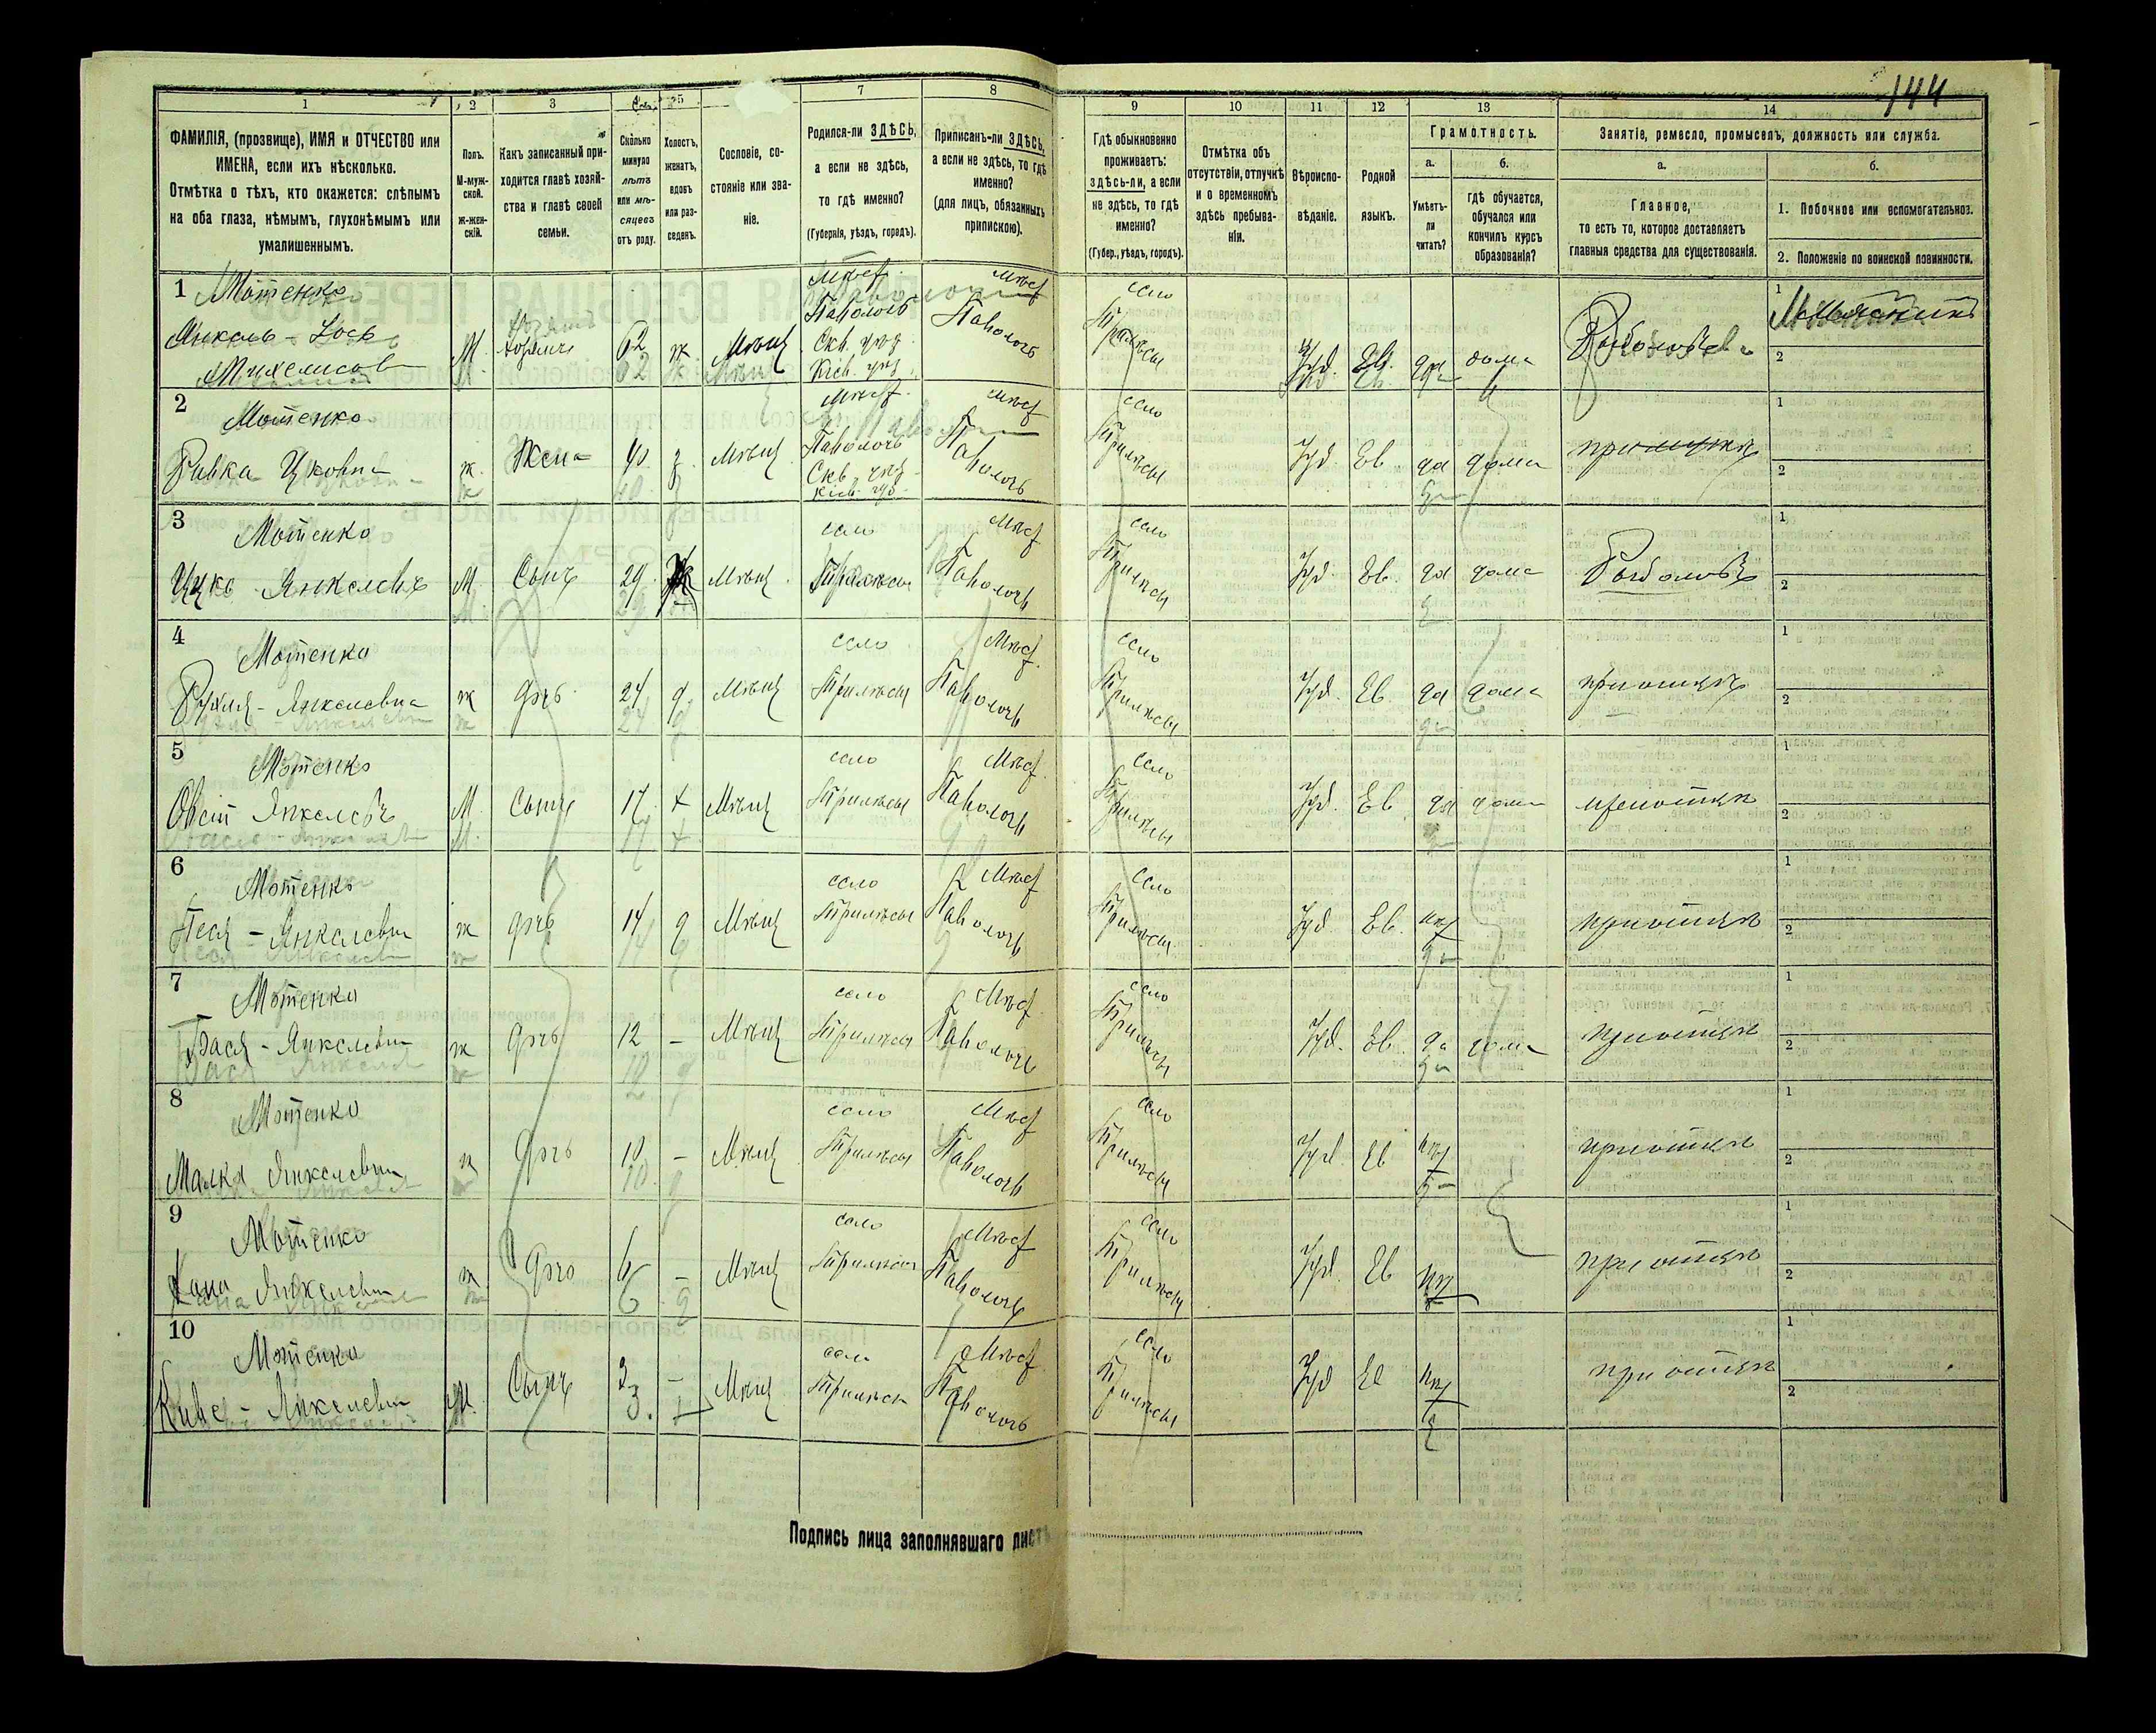 144
1 2 3 4 5 7 8 9 10 11 12 13 14
ФАМИЛІЯ, (прозвище), ИМЯ и ОТЧЕСТВО или
ИМЕНА, если ихъ нѣсколько.
Отмѣтка о тѣхъ, кто окажется: слѣпымъ
на оба глаза, нѣмымъ, глухонѣмымъ или
умалишеннымъ.
Полъ.
М-муж-
ской.
ж-жен-
скій.
Какъ записанный при-
ходится главѣ хозяй-
ства и главѣ своей
семьи.
Сколько
минуло
лѣтъ
или мѣ-
сяцевъ
отъ роду.
Холостъ,
женатъ,
вдовъ
или раз-
веденъ.
Сословіе, со-
стояніе или зва-
ніе.
Родился-ли ЗДѢСЬ,
а если не здѣсь,
то гдѣ именно?
(Губернія, уѣздъ, городъ).
Приписанъ-ли ЗДѢСЬ,
а если не здѣсь, то гдѣ
именно?
(для лицъ, обязанныхъ
припискою).
Гдѣ обыкновенно
проживаетъ:
здѣсь-ли, а если
не здѣсь, то гдѣ
именно?
(Губер., уѣздъ, городъ).
Отмѣтка объ
отсутствіи, отлучкѣ
и о временномъ
здѣсь пребыва-
ніи.
Вѣроиспо-
вѣданіе.
Родной
языкъ.
Грамотность.
а.
Умѣетъ-
ли
читать?
б.
гдѣ обучается,
обучался или
кончилъ курсъ
образованія?
Занятіе, ремесло, промыселъ, должность или служба.
а.
Главное,
то есть то, которое доставляетъ
главныя средства для существованія.
б.
1. Побочное или вспомогательное.
2. Положеніе по воинской повинности.
1 Мотенко
Янкель - Іось
М. 62 ж Мѣщ
Мѣст Паволочь Скв. уѣз. Кіев.
Мѣст Паволочь
село Трилѣсы
Іуд. Ев. да дома
1
2
2 Мотенко
Ривка Ицковна
ж. Жена 40 з Мѣщ
Мѣст Паволочь Скв. уѣз. Кіев. губ.
Мѣст Паволочь
село Трилѣсы
Іуд. Ев да дома
1
2
3 Мотенко
Ицко Янкелевъ
М. Сынъ 29 Мѣщ
село Трилѣсы
Мѣст Паволочь
село Трилѣсы
Іуд. Ев. да дома Рыболовъ
1
2
4 Мотенко
Янкелевна
ж дочь 24 д Мѣщ
село Трилѣсы
Мѣст Паволочь
село Трилѣсы
Іуд. Ев да дома при отцѣ
1
2
5 Мотенко
Янкелевъ
М. Сынъ 17 х Мѣщ
село Трилѣсы
Мѣст Паволочь
село Трилѣсы
Іуд. Ев да дома при отцѣ
1
2
6 Мотенко
Песя - Янкелевна
ж дочь 14 д Мѣщ
село Трилѣсы
Мѣст Паволочь
село Трилѣсы
Іуд Ев. нѣт при отцѣ
1
2
7 Мотенко
Бася - Янкелевна
ж дочь 12 - Мѣщ
село Трилѣсы
Мѣст Паволочь
село Трилѣсы
Іуд. Ев. да дома при отцѣ
1
2
8 Мотенко
Малка Янкелевна
ж дочь 10 - Мѣщ
село Трилѣсы
Мѣст Паволочь
село Трилѣсы
Іуд. Ев нѣт при отцѣ
1
2
9 Мотенко
Хана Янкелевна
ж дочь 6 - Мѣщ
село Трилѣсы
Мѣст Паволочь
село Трилѣсы
Іуд. Ев нѣт при отцѣ
1
2
10 Мотенко
М. Сынъ 3 - Мѣщ
село Трилѣсы
Мѣст Паволочь
село Трилѣсы
Іуд Ев нѣт при отцѣ
1
2
Подпись лица заполнявшаго листъ